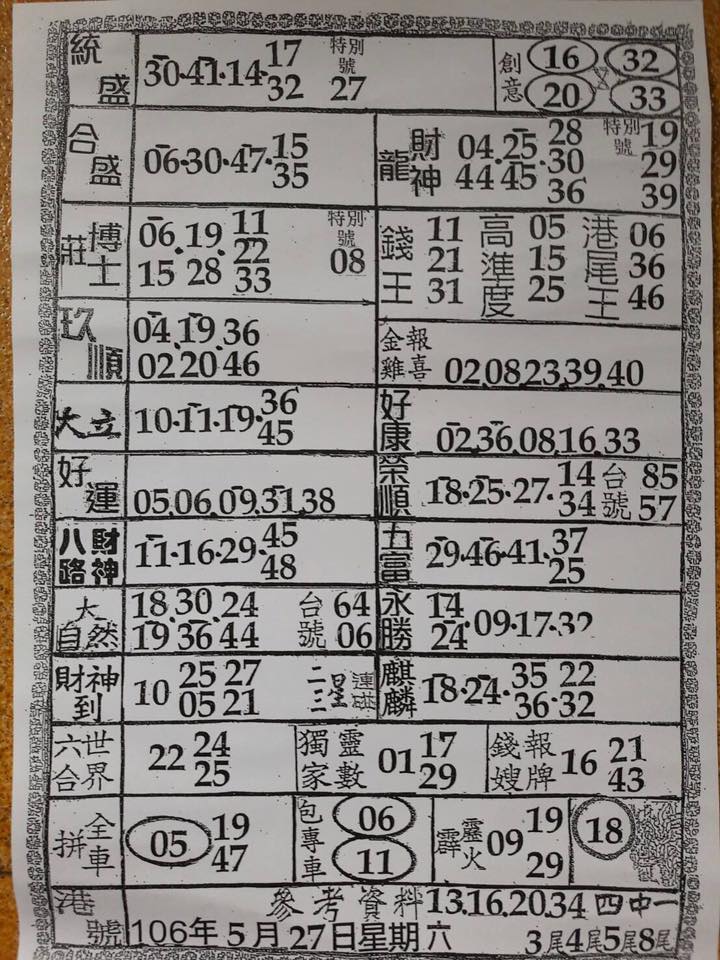 統盛 30·41·14·17 32 特別號 27 創意 16 32 20 33
合盛 06·30·47·15 35 財神龍 04 25 28 30 44 45 36 特別號 19 29 39
博士莊 06 19 11 22 15 28 33 特別號 08 錢王 11 21 31 高準度 05 15 25 港尾王 06 36 46
玖順 04.19.36 02.20.46 金雞報喜 02.08.23.39.40
大立 10·11·19·36 45 好康 02.36.08.16.33
好運 05.06.09.31.38 榮順 18·25·27·14 34 台號 85 57
八路財神 11·16·29·45 48 五富 29·46·41·37 25
大自然 18.30.24 19.36.44 台號 64 06 永勝 14 24·09·17·32
財神到 10 25 27 05 21 二三星連碰 麒麟 18·24·35 22 36·32
六合世界 22 24 25 獨家靈數 01 17 29 錢嫂報牌 16 21 43
全車拼 05 19 47 包專車 06 11 霹靂火 09 19 29 18
港號 參考資料 13.16.20.34 四中一
106年5月27日星期六 3尾4尾5尾8尾